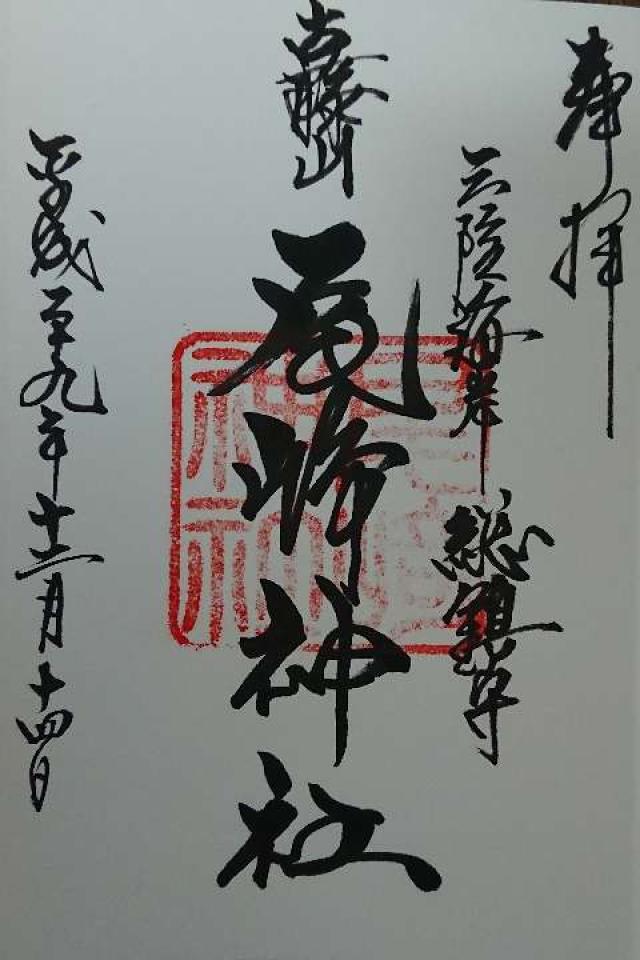 奉拝
三陸海岸 総鎮守
尾崎神社
平成二十九年十二月十四日